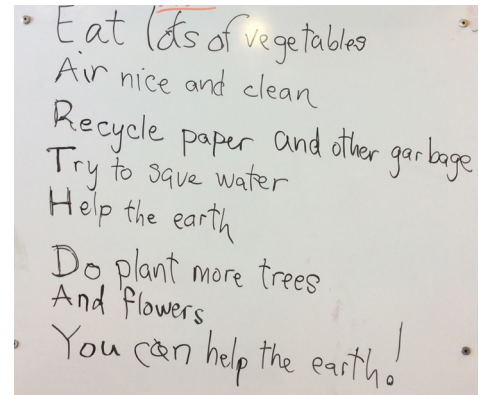 Eat lots of vegetables
Air nice and clean
Recycle paper and other garbage
Try to save water
Help the earth
Do plant more trees
And flowers
You can help the earth!